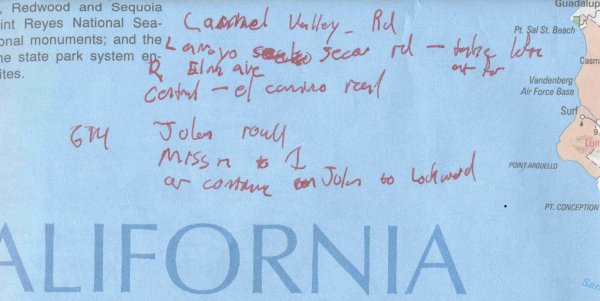 , Redwood and Sequoia
int Reyes National Sea-
onal monuments; and the
ne state park system en-
ites.
Carmel Valley Rd
L arroyo seco rd
R Elm ave
Central - el camino real
G14 Jolon road
Mission to 1
or continue on Jolon to Lockwood
ALIFORNIA
Guadalup
Pt. Sal St. Beach
Casm
Vandenberg
Air Force Base
Surf
9
Lom
POINT ARGUELLO
PT. CONCEPTION
San